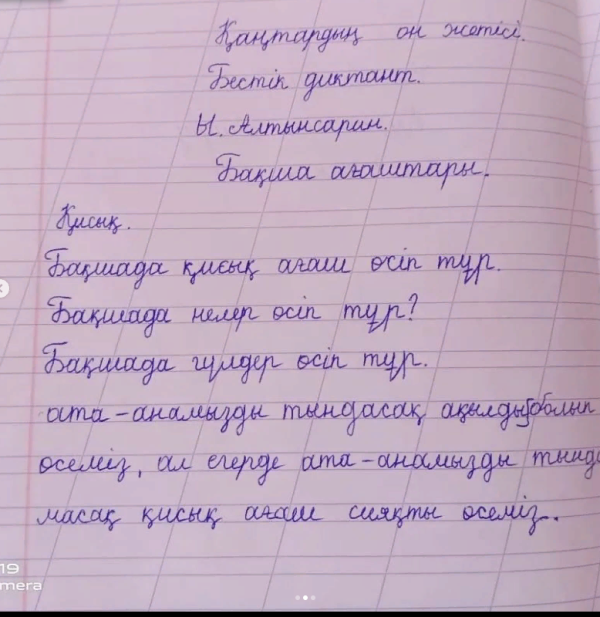 Қаңтардың он жетісі.
Бестік диктант.
Ы. Алтынсарин.
Бақша ағаштары.
Қисық.
Бақшада қисық ағаш өсіп тұр.
Бақшада нелер өсіп тұр?
Бақшада гүлдер өсіп тұр.
ата-анамызды тындасақ ақылды болып
өсеміз, ал егерде ата-анамызды тында
масақ қисық ағаш сияқты өсеміз.
19
mera